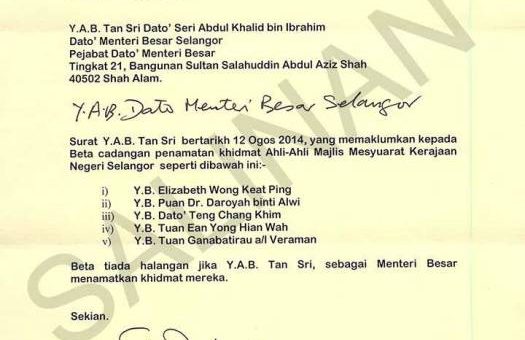 Y.A.B. Tan Sri Dato' Seri Abdul Khalid bin Ibrahim
Dato' Menteri Besar Selangor
Pejabat Dato' Menteri Besar
Tingkat 21, Bangunan Sultan Salahuddin Abdul Aziz Shah
40502 Shah Alam.
Y.A.B. Dato Menteri Besar Selangor
Surat Y.A.B. Tan Sri bertarikh 12 Ogos 2014, yang memaklumkan kepada
Beta cadangan penamatan khidmat Ahli-Ahli Majlis Mesyuarat Kerajaan
Negeri Selangor seperti dibawah ini:-
i) Y.B. Elizabeth Wong Keat Ping
ii) Y.B. Puan Dr. Daroyah binti Alwi
iii) Y.B. Dato' Teng Chang Khim
iv) Y.B. Tuan Ean Yong Hian Wah
v) Y.B. Tuan Ganabatirau a/l Veraman
Beta tiada halangan jika Y.A.B. Tan Sri, sebagai Menteri Besar
menamatkan khidmat mereka.
Sekian.
SALINAN